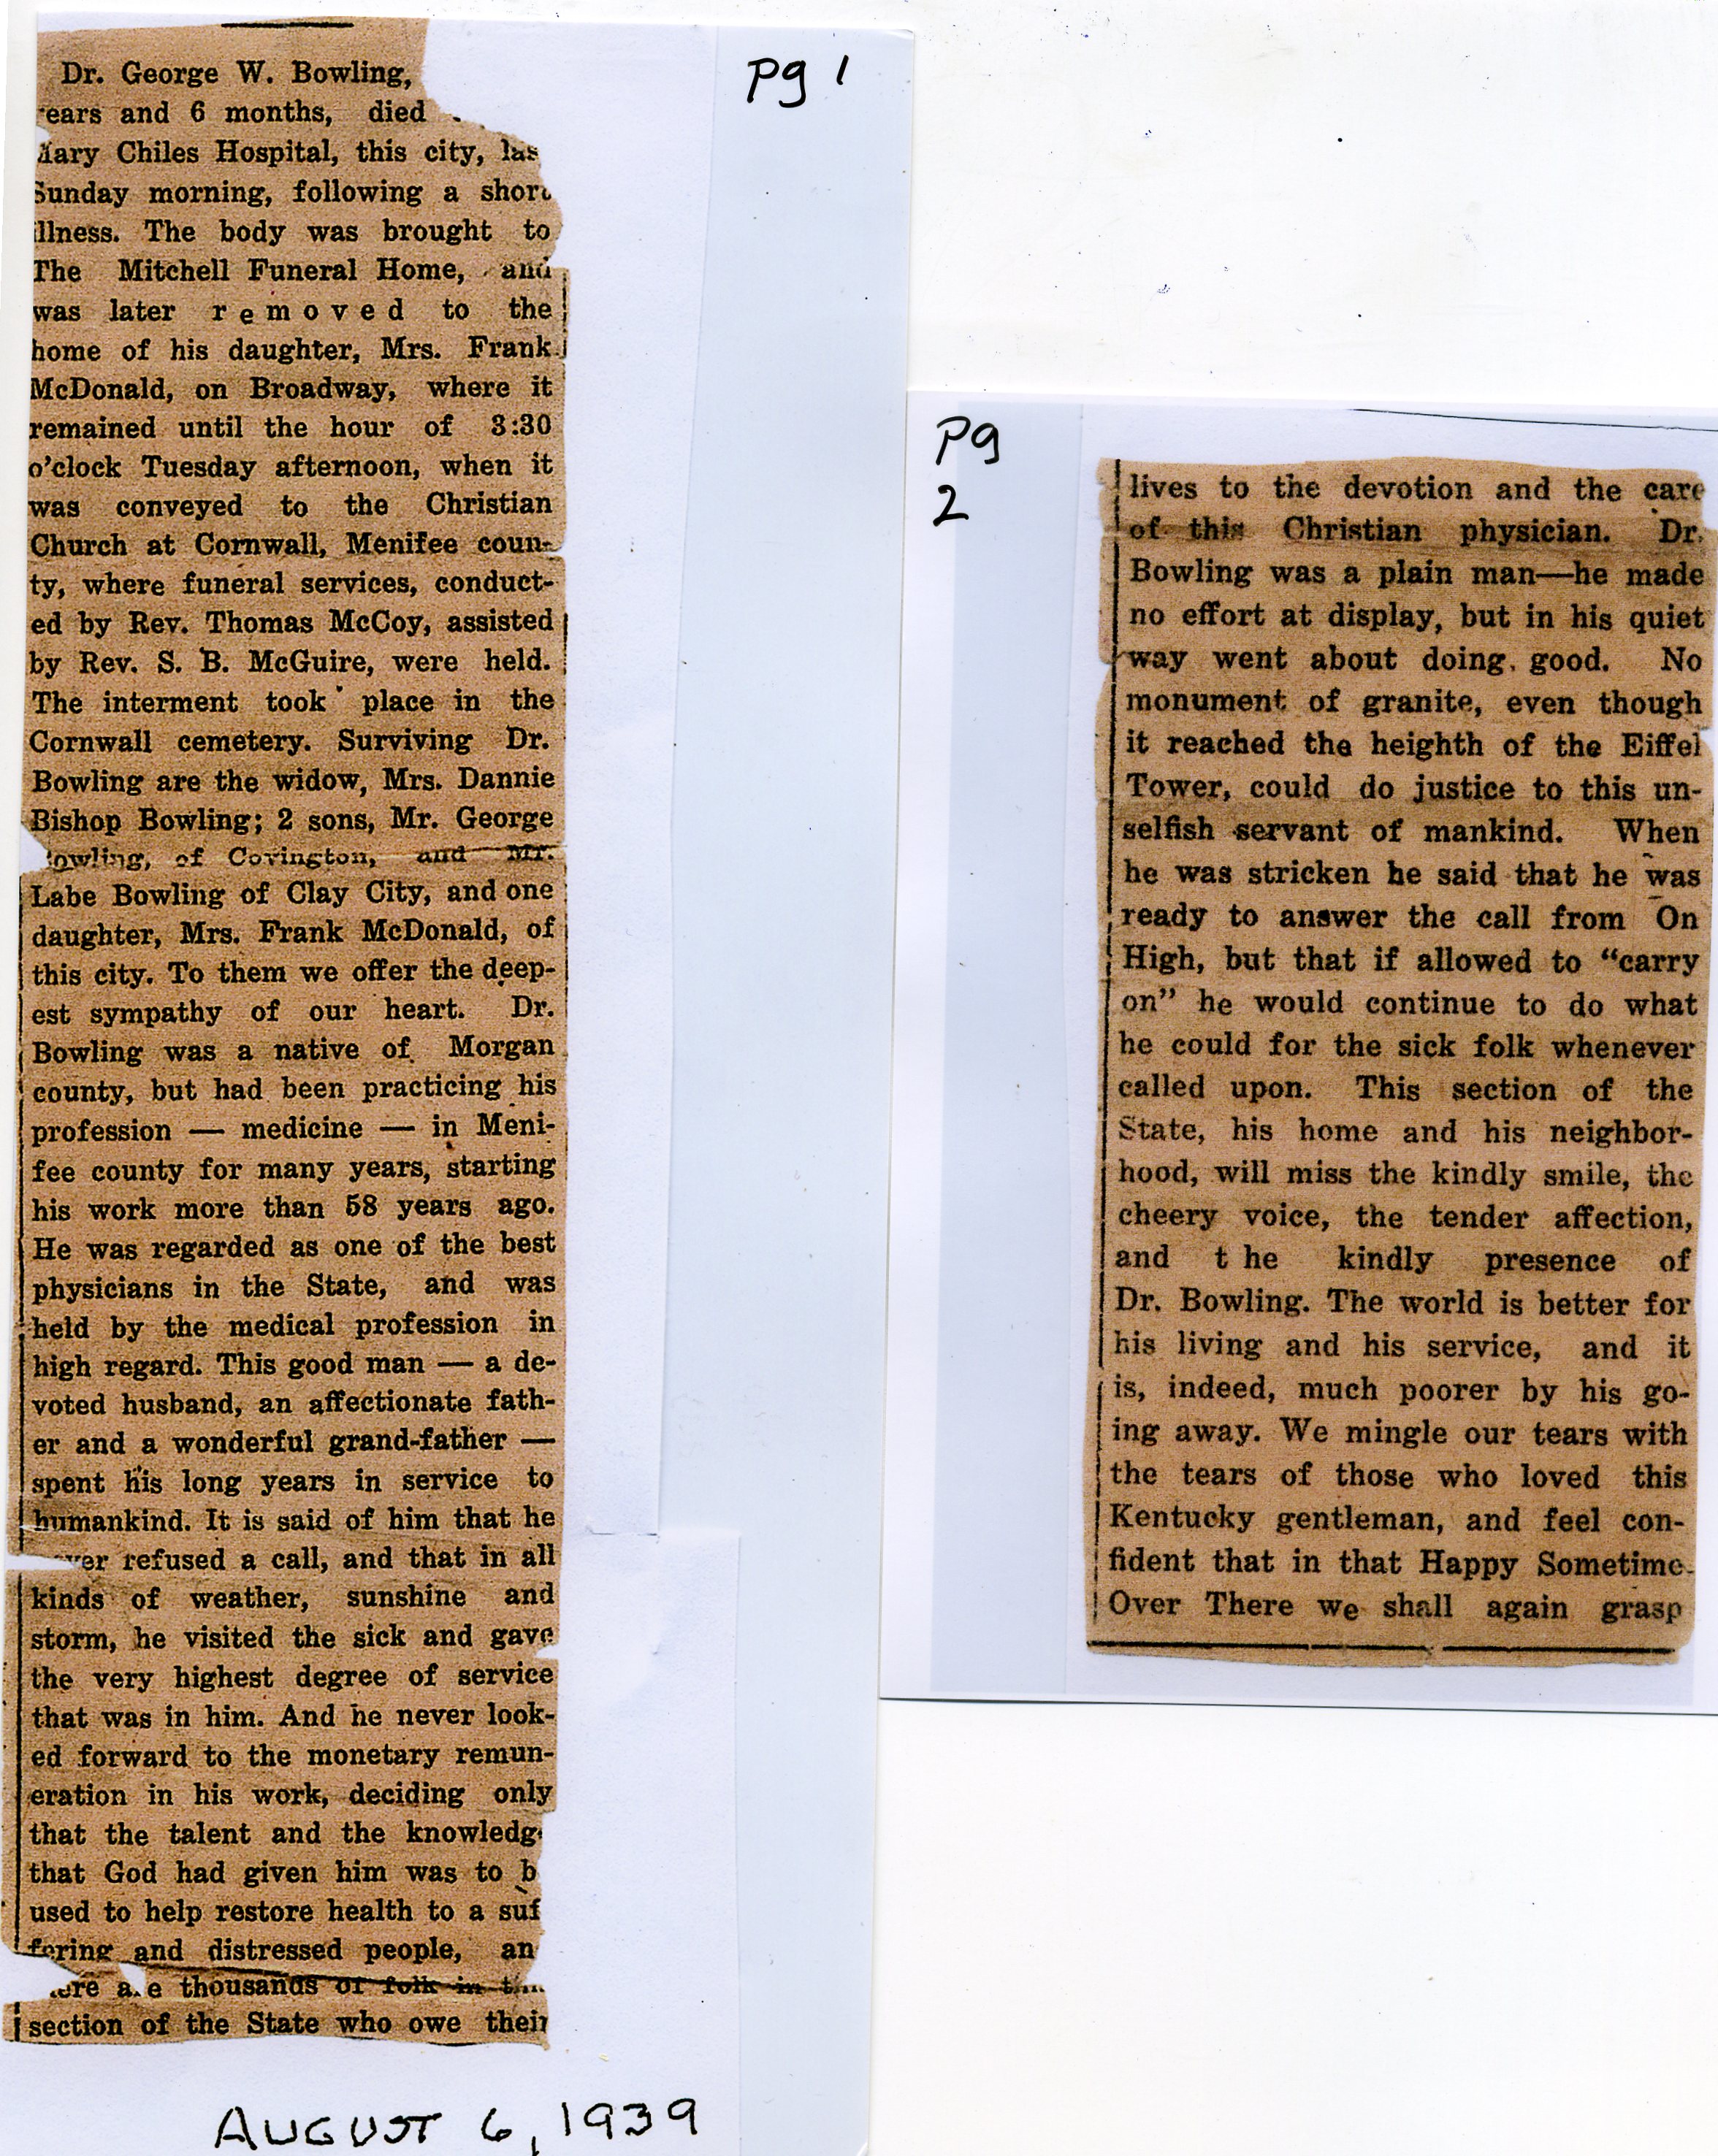 pg 1
Dr. George W. Bowling,
ears and 6 months, died
Mary Chiles Hospital, this city, las
Sunday morning, following a short
illness. The body was brought to
The Mitchell Funeral Home, and
was later removed to the
home of his daughter, Mrs. Frank
McDonald, on Broadway, where it
remained until the hour of 3:30
o'clock Tuesday afternoon, when it
was conveyed to the Christian
Church at Cornwall, Menifee coun-
ty, where funeral services, conduct-
ed by Rev. Thomas McCoy, assisted
by Rev. S. B. McGuire, were held.
The interment took place in the
Cornwall cemetery. Surviving Dr.
Bowling are the widow, Mrs. Dannie
Bishop Bowling; 2 sons, Mr. George
owling, of Covington, and Mr.
Labe Bowling of Clay City, and one
daughter, Mrs. Frank McDonald, of
this city. To them we offer the deep-
est sympathy of our heart. Dr.
Bowling was a native of Morgan
county, but had been practicing his
profession — medicine — in Meni-
fee county for many years, starting
his work more than 58 years ago.
He was regarded as one of the best
physicians in the State, and was
held by the medical profession in
high regard. This good man — a de-
voted husband, an affectionate fath-
er and a wonderful grand-father —
spent his long years in service to
humankind. It is said of him that he
ver refused a call, and that in all
kinds of weather, sunshine and
storm, he visited the sick and gave
the very highest degree of service
that was in him. And he never look-
ed forward to the monetary remun-
eration in his work, deciding only
that the talent and the knowledg
that God had given him was to b
used to help restore health to a suf
fering and distressed people, an
ere are thousands of folk in
section of the State who owe their
AUGUST 6, 1939
pg
2
lives to the devotion and the care
of this Christian physician. Dr.
Bowling was a plain man—he made
no effort at display, but in his quiet
way went about doing good. No
monument of granite, even though
it reached the heighth of the Eiffel
Tower, could do justice to this un-
selfish servant of mankind. When
he was stricken he said that he was
ready to answer the call from On
High, but that if allowed to "carry
on" he would continue to do what
he could for the sick folk whenever
called upon. This section of the
State, his home and his neighbor-
hood, will miss the kindly smile, the
cheery voice, the tender affection,
and t he kindly presence of
Dr. Bowling. The world is better for
his living and his service, and it
is, indeed, much poorer by his go-
ing away. We mingle our tears with
the tears of those who loved this
Kentucky gentleman, and feel con-
fident that in that Happy Sometime
Over There we shall again grasp